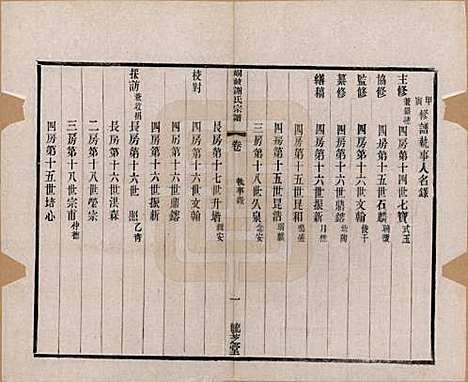 甲寅修譜執事人名錄
主修 四房第十四世七寶 式玉
協修 四房第十五世石麟
監修 四房第十六世文翰
纂修 四房第十六世鼎鎔
繕稿 四房第十六世振新
四房第十五世昆和
四房第十五世昆浩
三房第十八世久泉 念安
峒岐謝氏宗譜
卷
執事錄
一
長房第十七世升培
校對 四房第十六世文翰
四房第十六世鼎鎔
四房第十六世振新
採訪 長房第十六世 乙青
長房第十六世洪森
二房第十八世榮宗
三房第十八世宗甫
四房第十五世培心